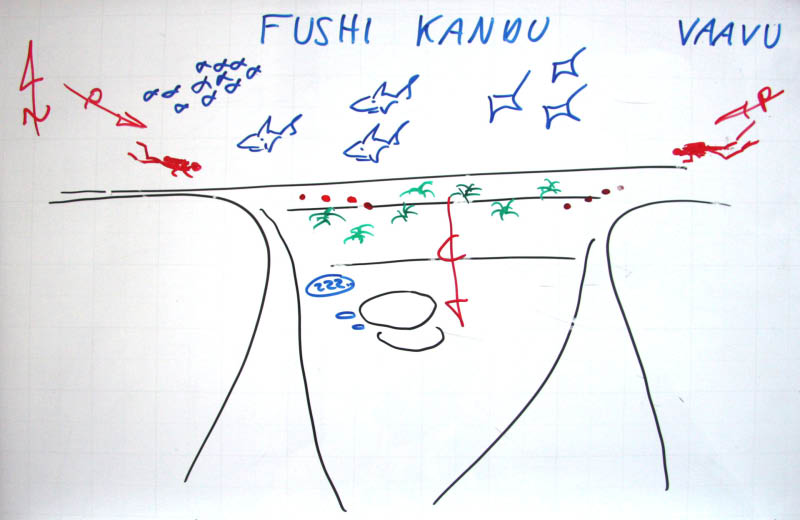 FUSHI KANDU VAAVU
N
P
P
C
zzz.